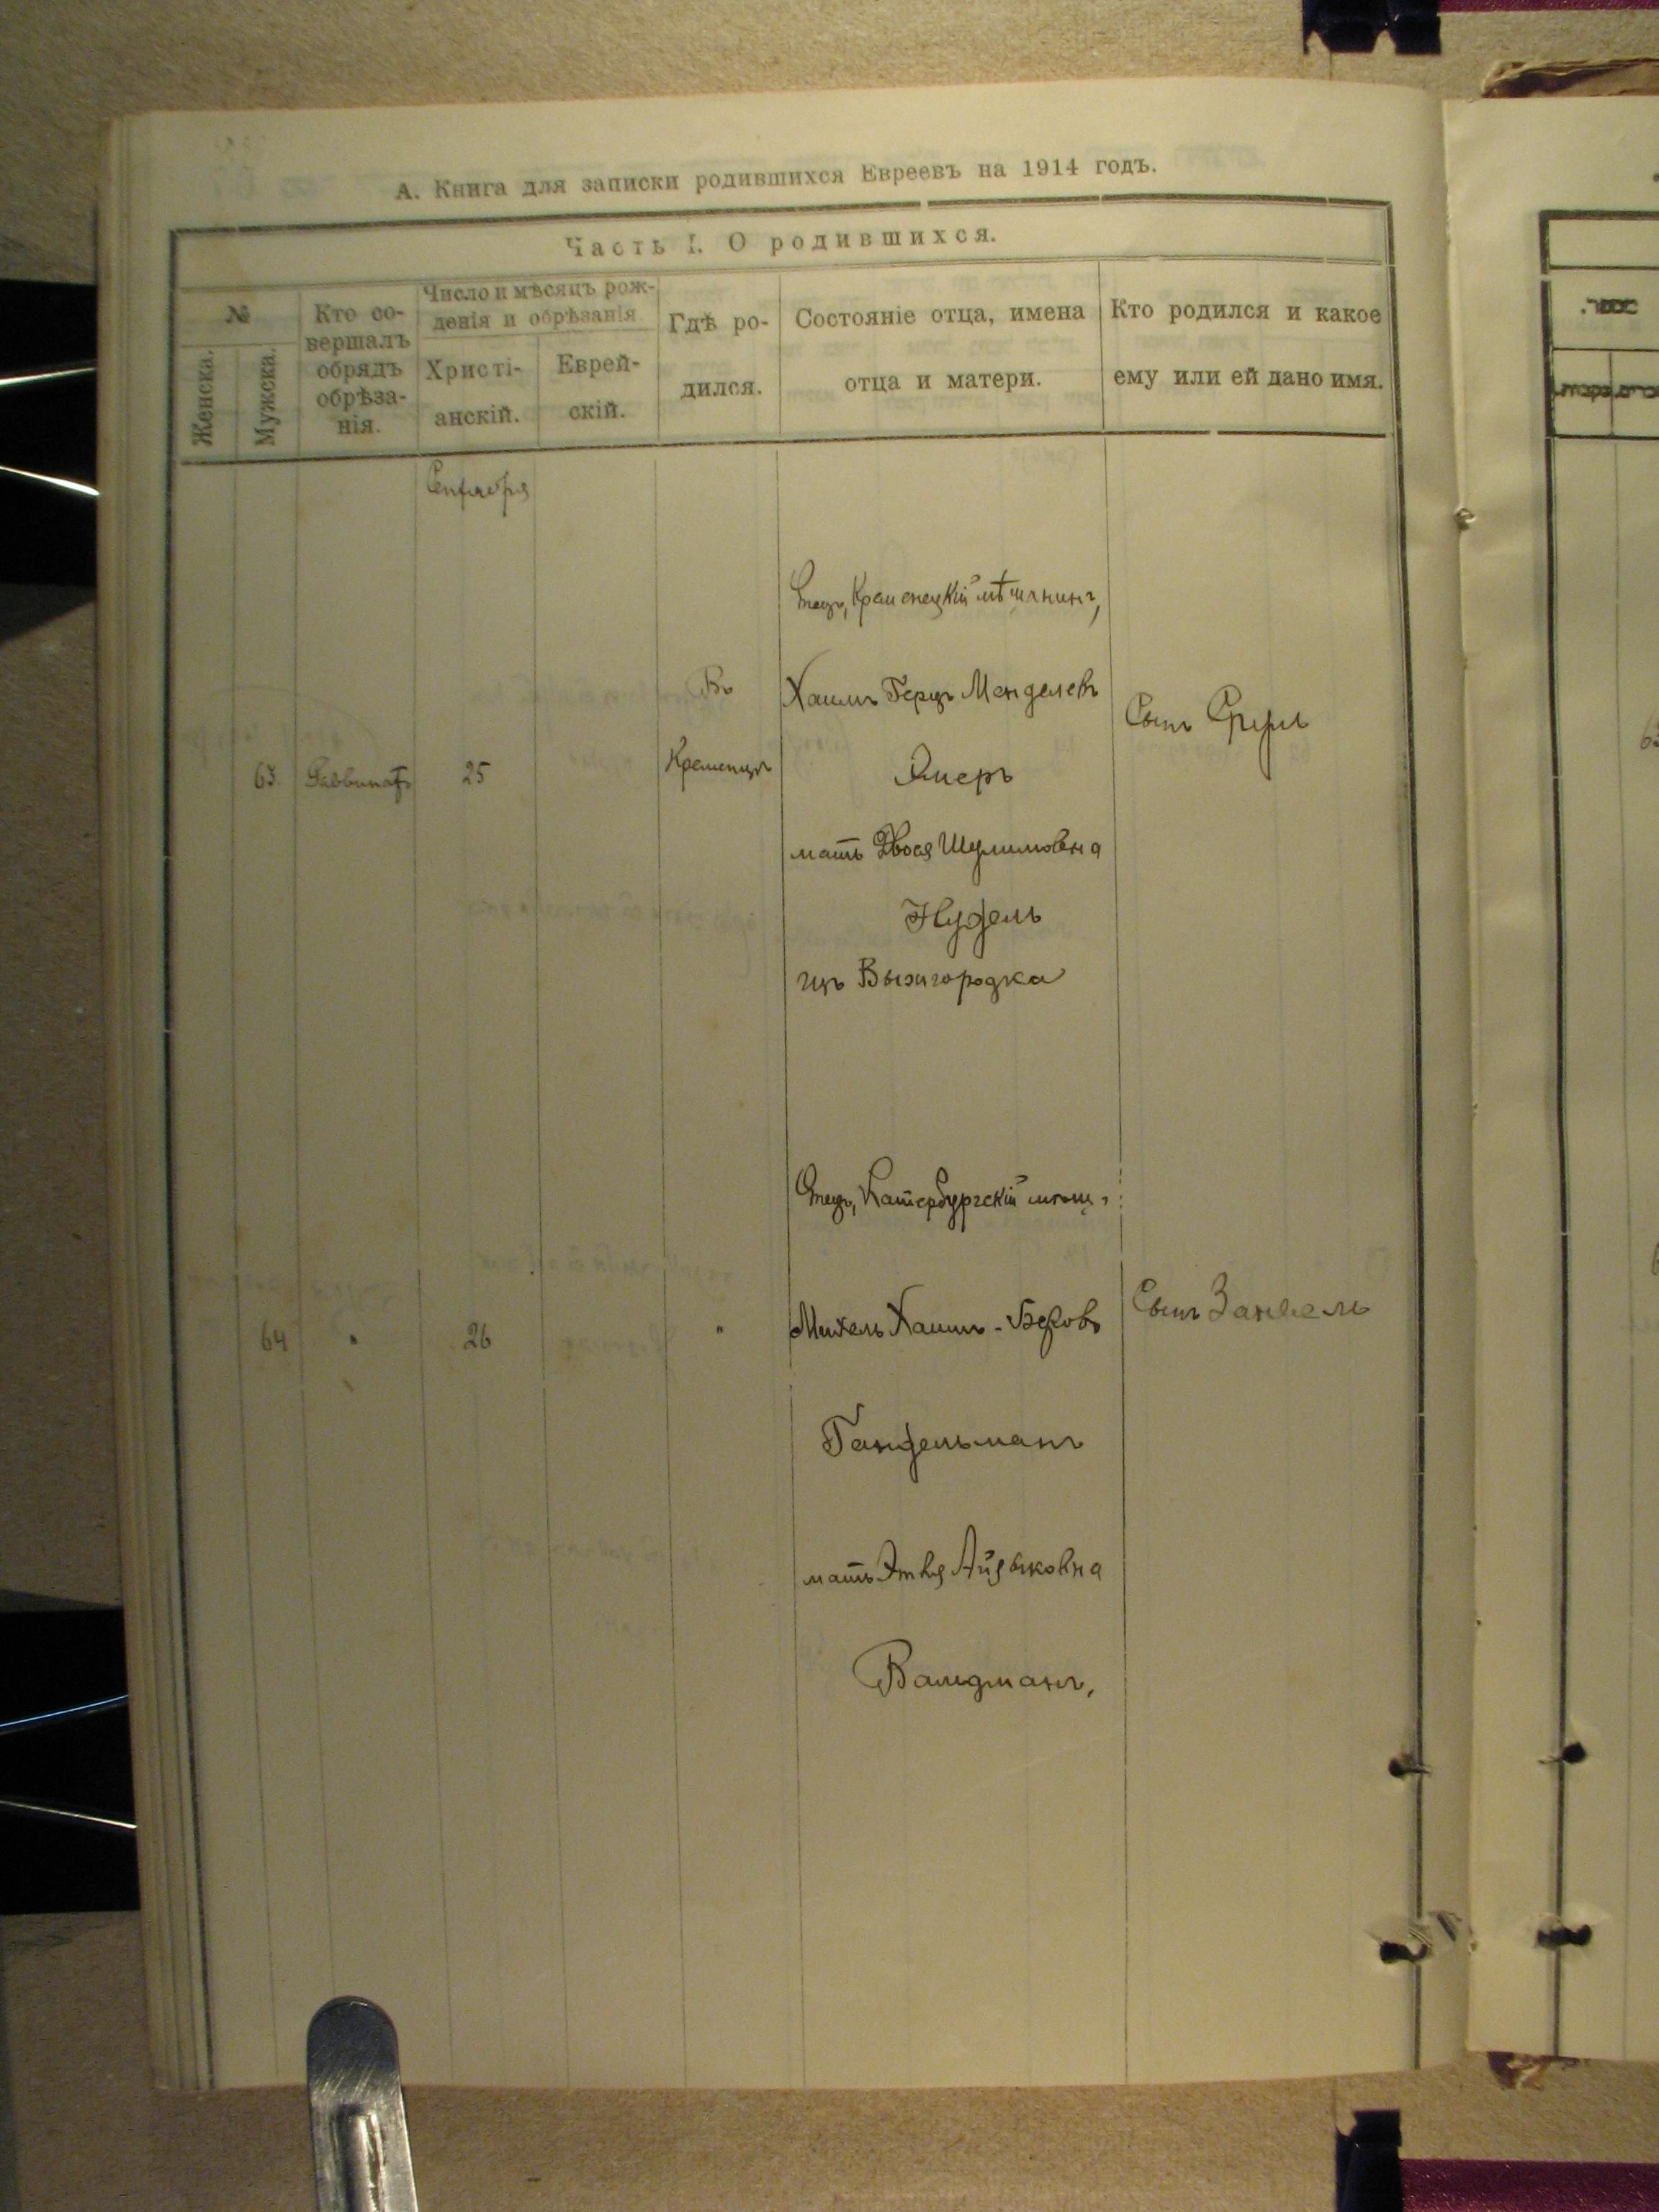 А. Книга для записки родившихся Евреевъ на 1914 годъ.
Часть I. О родившихся.
№
Женска.
Мужска.
Кто со-
вершалъ
обрядъ
обрѣза-
нія.
Число и мѣсяцъ рож-
денія и обрѣзанія
Христі-
анскій.
Еврей-
скій.
Гдѣ ро-
дился.
Состояніе отца, имена
отца и матери.
Кто родился и какое
ему или ей дано имя.
Сентября
63
25
Въ
Кременцѣ
Отецъ, Кременецкій мѣщанинъ,
Хаимъ Герцъ Менделевъ
мать Двося Шулимовна
Нудель
изъ Вышгородка
Сынъ Сруль
64
"
26
"
Отецъ, Катербургскій мѣщ.
Михель Хаимъ-Берковъ
Гандельманъ
мать Этля Айзыковна
Валдманъ,
Сынъ Занвель